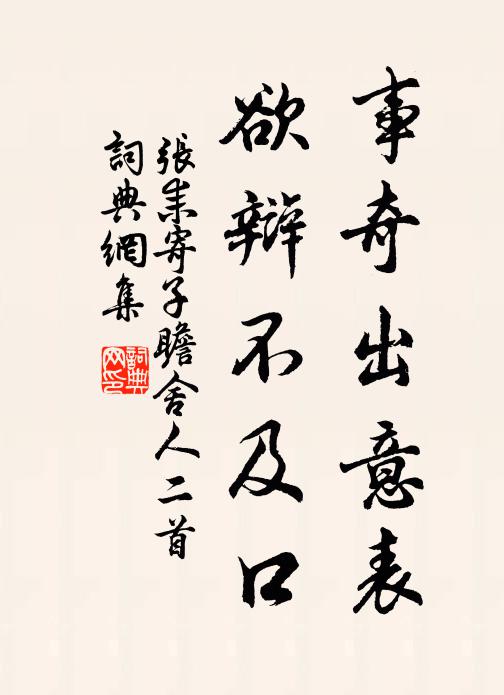 事奇出意表
欲辯不及口
張耒寄子瞻舍人二首
詞典網集
詞典網印